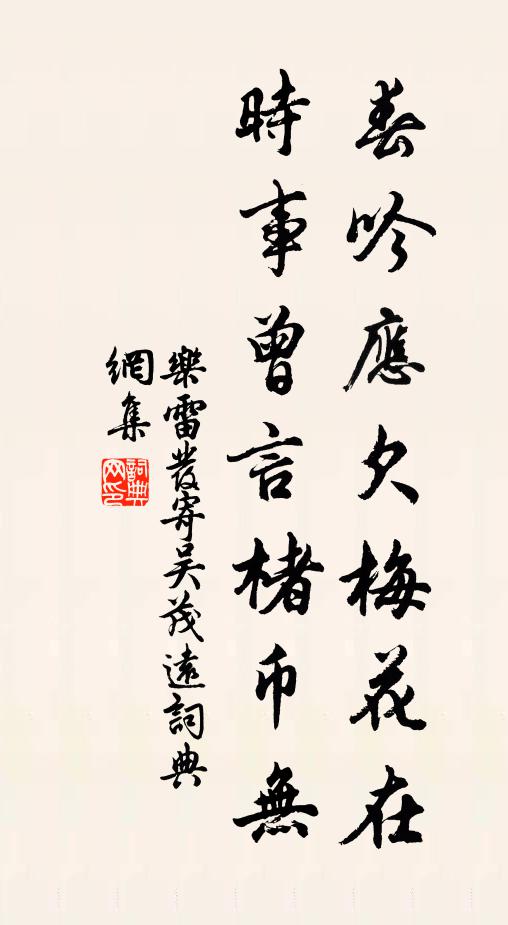 春吟應欠梅花在
時事曾言楮币無
樂雷發寄吳茂遠詞典
網集
詞典網印